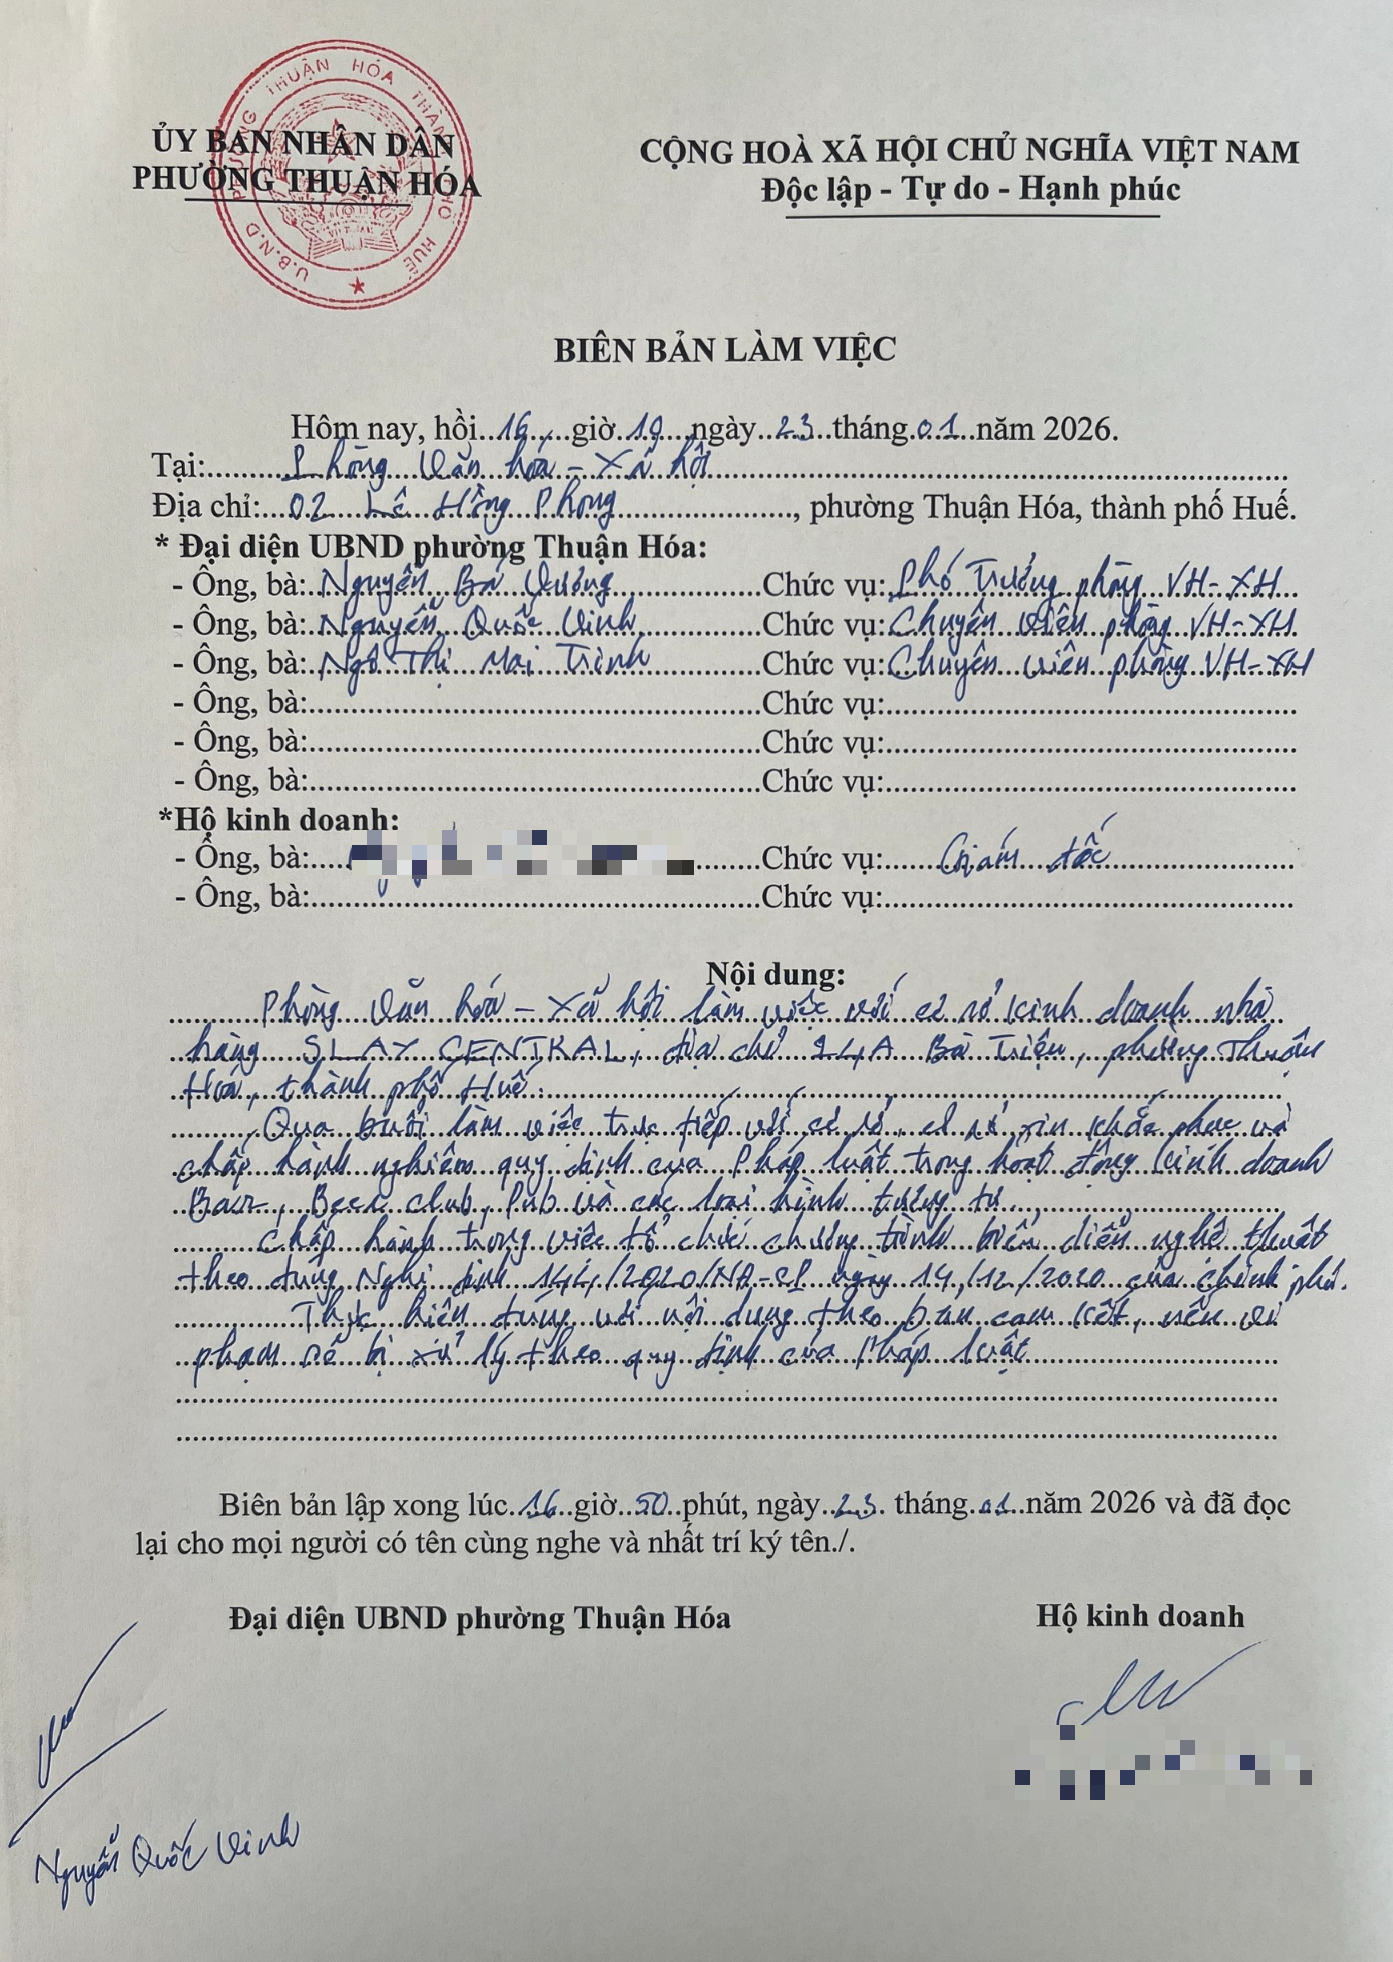 U.B.N.D PHƯỜNG THUẬN HÓA THÀNH PHỐ HUẾ
VIỆT NAM
ỦY BAN NHÂN DÂN
PHƯỜNG THUẬN HÓA
CỘNG HOÀ XÃ HỘI CHỦ NGHĨA VIỆT NAM
Độc lập - Tự do - Hạnh phúc
BIÊN BẢN LÀM VIỆC
Hôm nay, hồi 16 giờ 10 ngày 23 tháng 01 năm 2026.
Tại: Phòng Văn hóa - Xã hội
Địa chỉ: 02 Lê Hồng Phong, phường Thuận Hóa, thành phố Huế.
* Đại diện UBND phường Thuận Hóa:
- Ông, bà: Nguyễn Bá Vương Chức vụ: Phó Trưởng phòng VH-XH
- Ông, bà: Nguyễn Quốc Vinh Chức vụ: Chuyên viên phòng VH-XH
- Ông, bà: Ngô Thị Mai Trinh Chức vụ: Chuyên viên phòng VH-XH
- Ông, bà: Chức vụ:
- Ông, bà: Chức vụ:
- Ông, bà: Chức vụ:
*Hộ kinh doanh:
- Ông, bà: Chức vụ: Giám đốc
- Ông, bà: Chức vụ:
Nội dung:
Phòng Văn hóa - Xã hội làm việc với cơ sở kinh doanh nhà
hàng SLAY CENTRAL, địa chỉ 24A Bà Triệu, phường Thuận
Hoá, thành phố Huế.
Qua buổi làm việc trực tiếp với cơ sở, cơ sở xin khắc phục và
chấp hành nghiêm quy định của Pháp luật trong hoạt động kinh doanh
Bar, Beer club, Pub và các loại hình tương tự.
Chấp hành trong việc tổ chức chương trình biểu diễn nghệ thuật
theo đúng Nghị định 144/2020/NĐ-CP ngày 14/12/2020 của Chính phủ.
Thực hiện đúng với nội dung theo bản cam kết, nếu vi
phạm sẽ bị xử lý theo quy định của Pháp luật
Biên bản lập xong lúc 16 giờ 50 phút, ngày 23 tháng 01 năm 2026 và đã đọc
lại cho mọi người có tên cùng nghe và nhất trí ký tên./.
Đại diện UBND phường Thuận Hóa
Hộ kinh doanh
Nguyễn Quốc Vinh